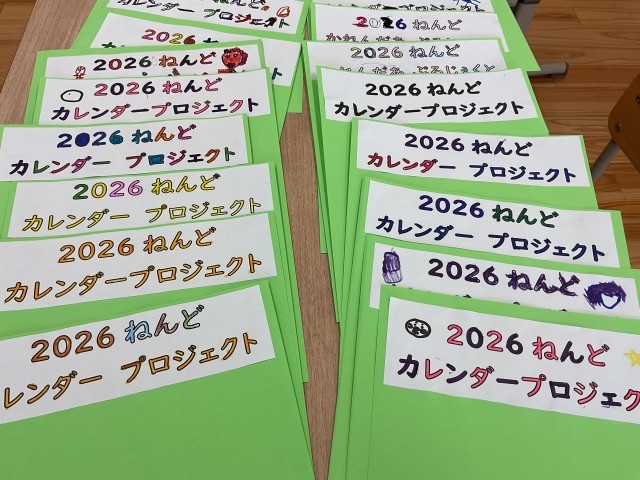 カレンダープロジェクト
2026 ねんど
カレンダー プロジェクト
2026 ねんど
2026 ねんど
カレンダープロジェクト
2026 ねんど
カレンダー プロジェクト
2026 ねんど
カレンダー プロジェクト
2026 ねんど
カレンダープロジェクト
2026 ねんど
レンダー プロジェクト
2026 ねんど
2026 ねんど
2026 ねんど
カレンダープロジェクト
2026 ねんど
カレンダー プロジェクト
2026 ねんど
カレンダー プロジェクト
2026 ねんど
2026 ねんど
カレンダープロジェク